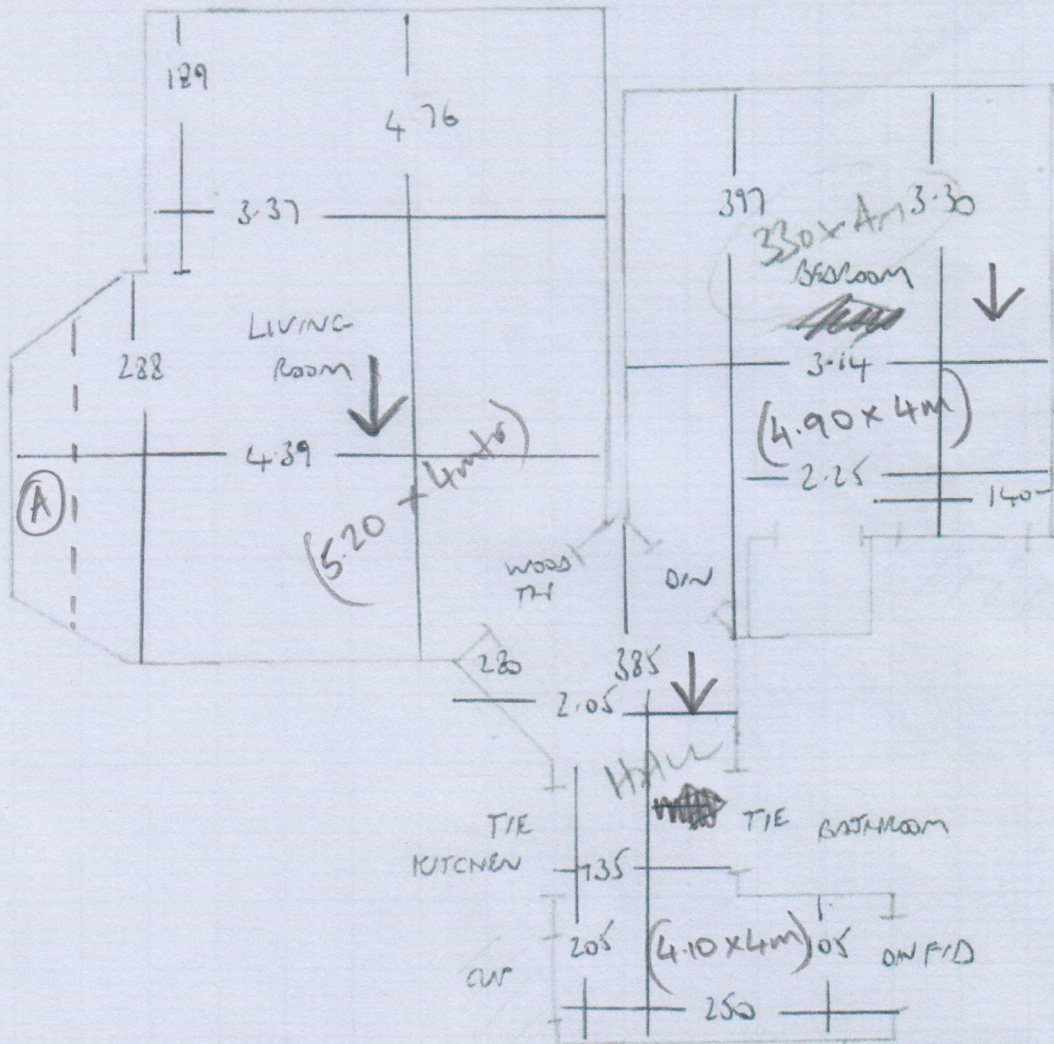 189
4.76
3.37
397
3.30
330 x 4m
BEDROOM
LIVING
ROOM
288
3.14
(4.90 x 4m)
4.39
2.25
140
A
(5.20 + 4mtr)
WOOD
D/N
280
385
2.05
HALL
T/E
KITCHEN
T/E BATHROOM
135
205
(4.10 x 4m)
105
D/N F/D
250